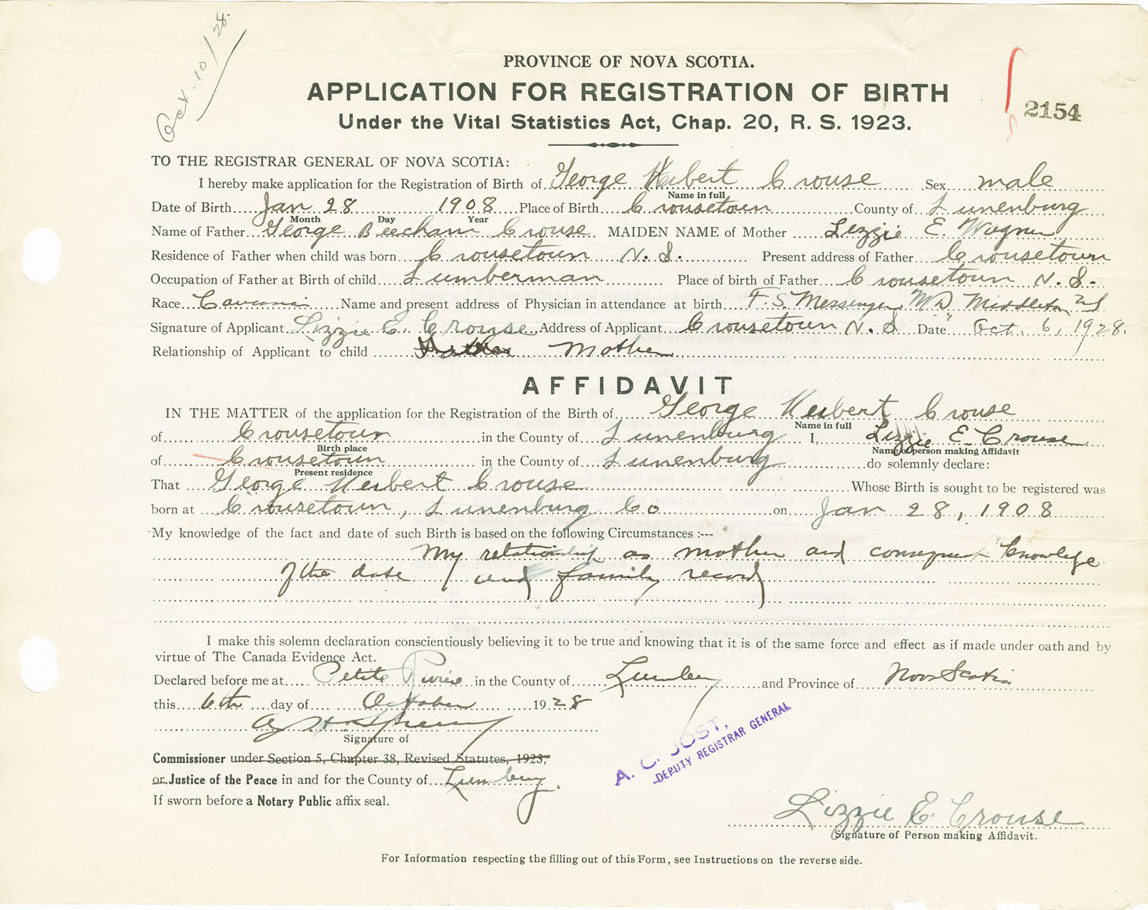 Oct. 10/28.
PROVINCE OF NOVA SCOTIA.
APPLICATION FOR REGISTRATION OF BIRTH
2154
Under the Vital Statistics Act, Chap. 20, R. S. 1923.
TO THE REGISTRAR GENERAL OF NOVA SCOTIA:
I hereby make application for the Registration of Birth of George Herbert Crouse Sex male
Name in full
Date of Birth Jan 28 1908 Place of Birth Crousetown County of Lunenburg
Month Day Year
Name of Father George Beecham Crouse MAIDEN NAME of Mother Lizzie E. Wagner
Residence of Father when child was born Crousetown N. S. Present address of Father Crousetown
Occupation of Father at Birth of child Lumberman Place of birth of Father Crousetown N. S.
Race Name and present address of Physician in attendance at birth F. S. Messenger, M D, Middleton N S
Signature of Applicant Lizzie E. Crouse Address of Applicant Crousetown N. S Date Oct. 6, 1928.
Relationship of Applicant to child Mother
AFFIDAVIT
IN THE MATTER of the application for the Registration of the Birth of George Herbert Crouse
Name in full
of Crousetown in the County of Lunenburg I, Lizzie E. Crouse
Birth place Name of person making Affidavit
of Crousetown in the County of Lunenburg do solemnly declare:
Present residence
That George Herbert Crouse Whose Birth is sought to be registered was
born at Crousetown, Lunenburg Co on Jan 28, 1908
My knowledge of the fact and date of such Birth is based on the following Circumstances :---
My relationship as mother and consequent knowledge
of the date and family record
I make this solemn declaration conscientiously believing it to be true and knowing that it is of the same force and effect as if made under oath and by
virtue of The Canada Evidence Act.
Declared before me at Petite Riviere in the County of and Province of Nova Scotia
this 6th day of October 1928
Signature of
Commissioner under Section 5, Chapter 38, Revised Statutes, 1923,
or Justice of the Peace in and for the County of
If sworn before a Notary Public affix seal.
A. C. JOST,
DEPUTY REGISTRAR GENERAL
Lizzie E. Crouse
Signature of Person making Affidavit.
For Information respecting the filling out of this Form, see Instructions on the reverse side.